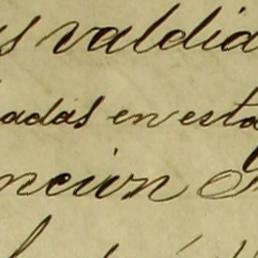 s valdia
adas en esta
ncion